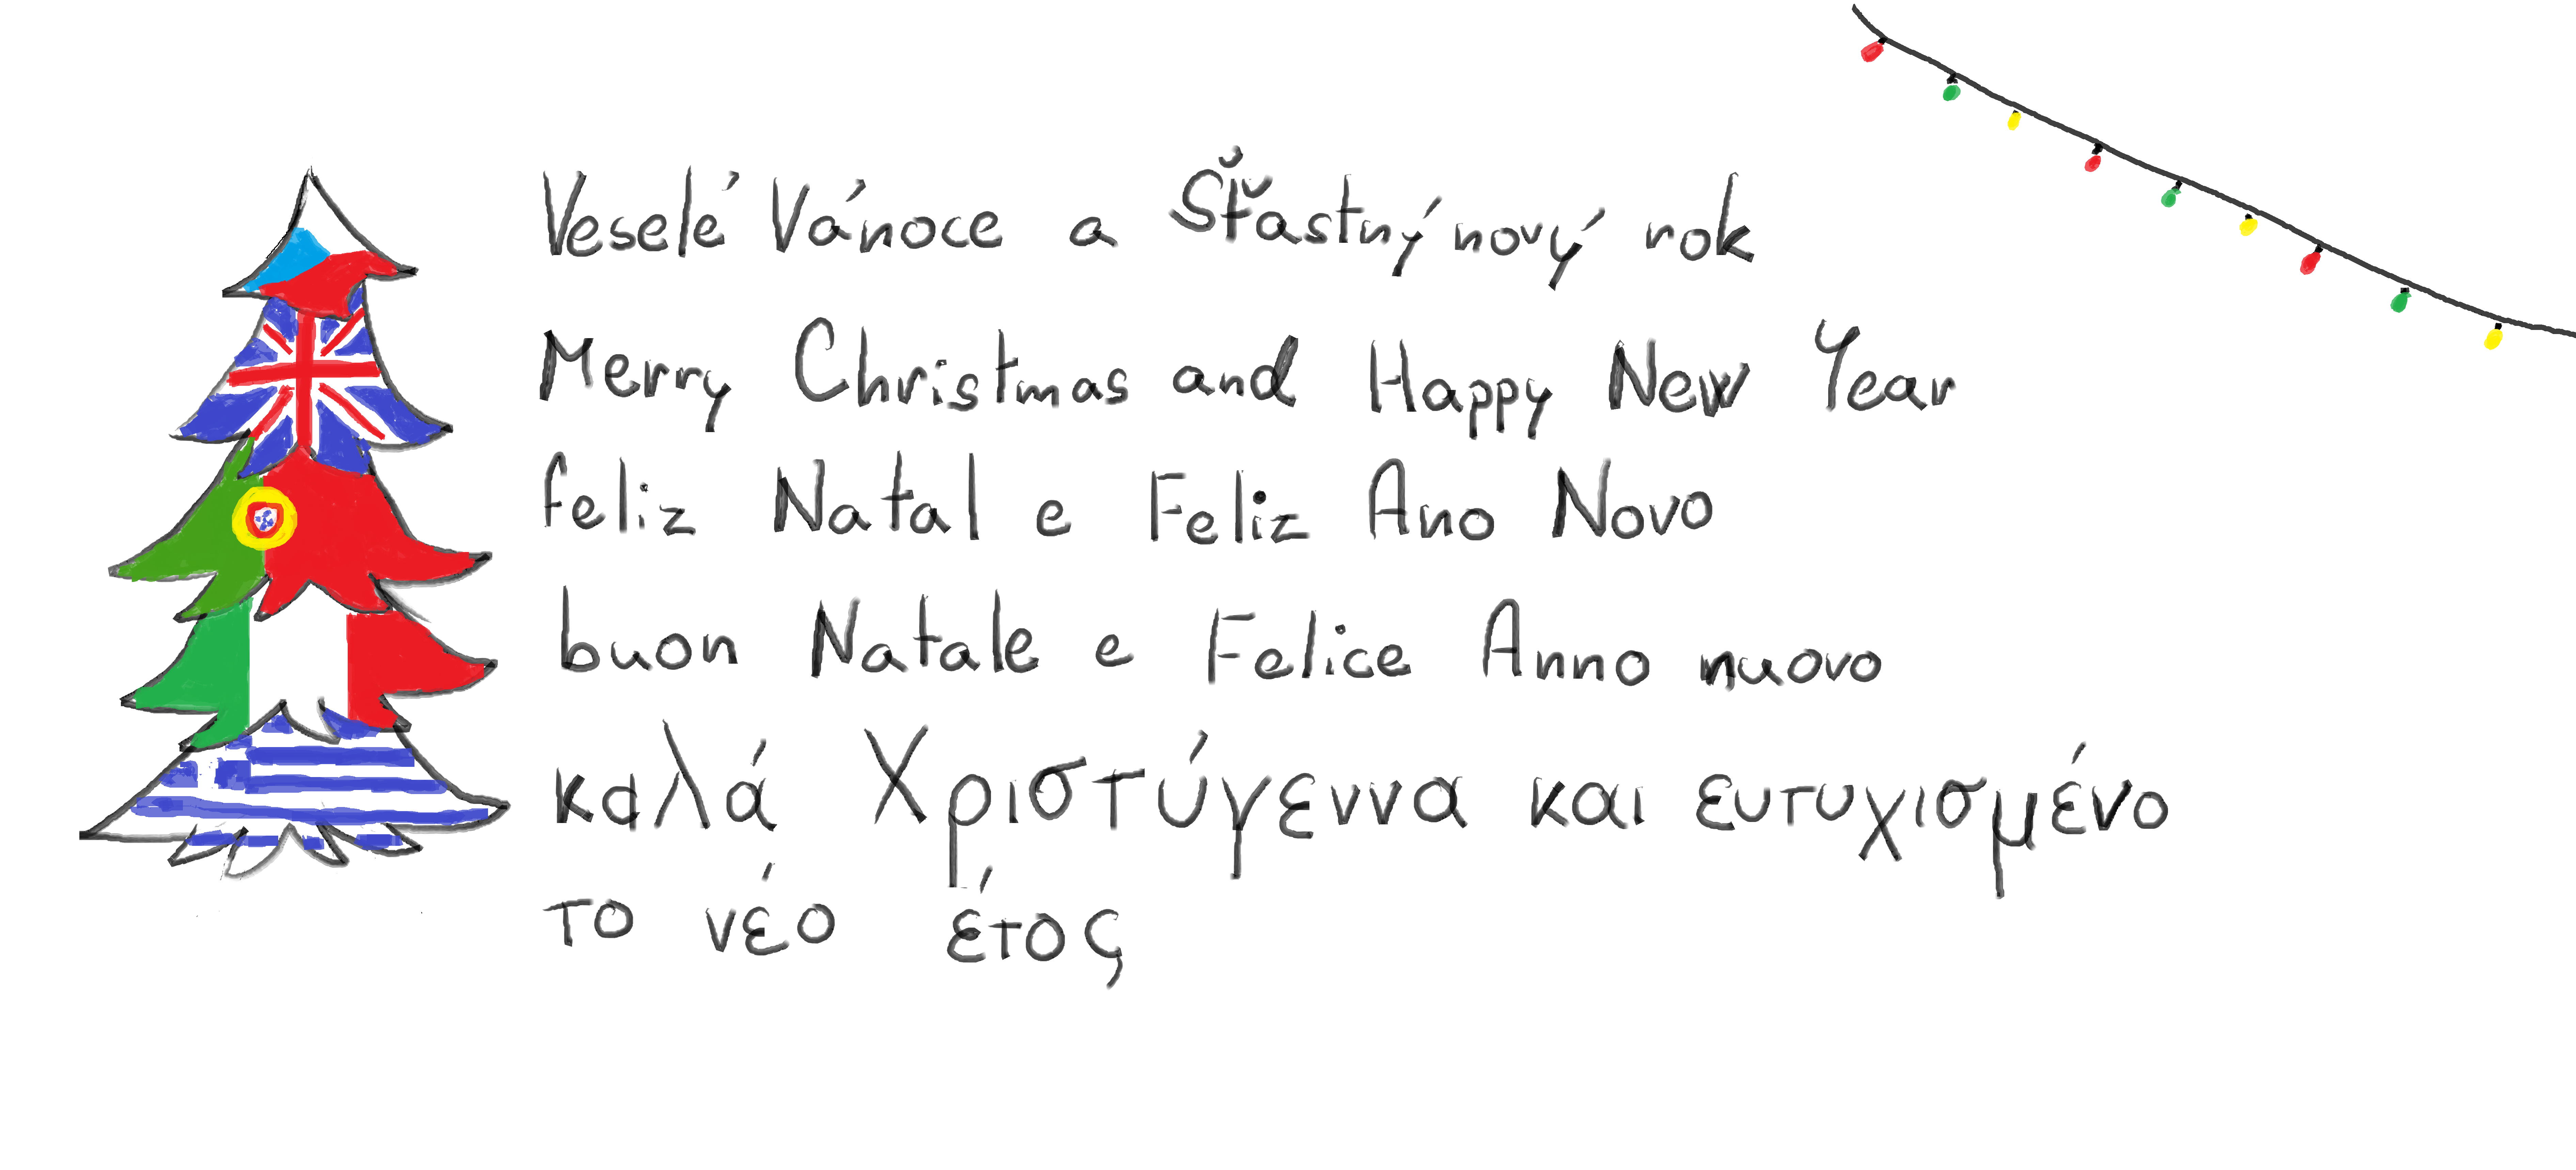 Veselé Vánoce a Šťastný nový rok
Merry Christmas and Happy New Year
feliz Natal e Feliz Ano Novo
buon Natale e Felice Anno nuovo
καλά Χριστύγεννα και ευτυχισμένο
το νέο έτος